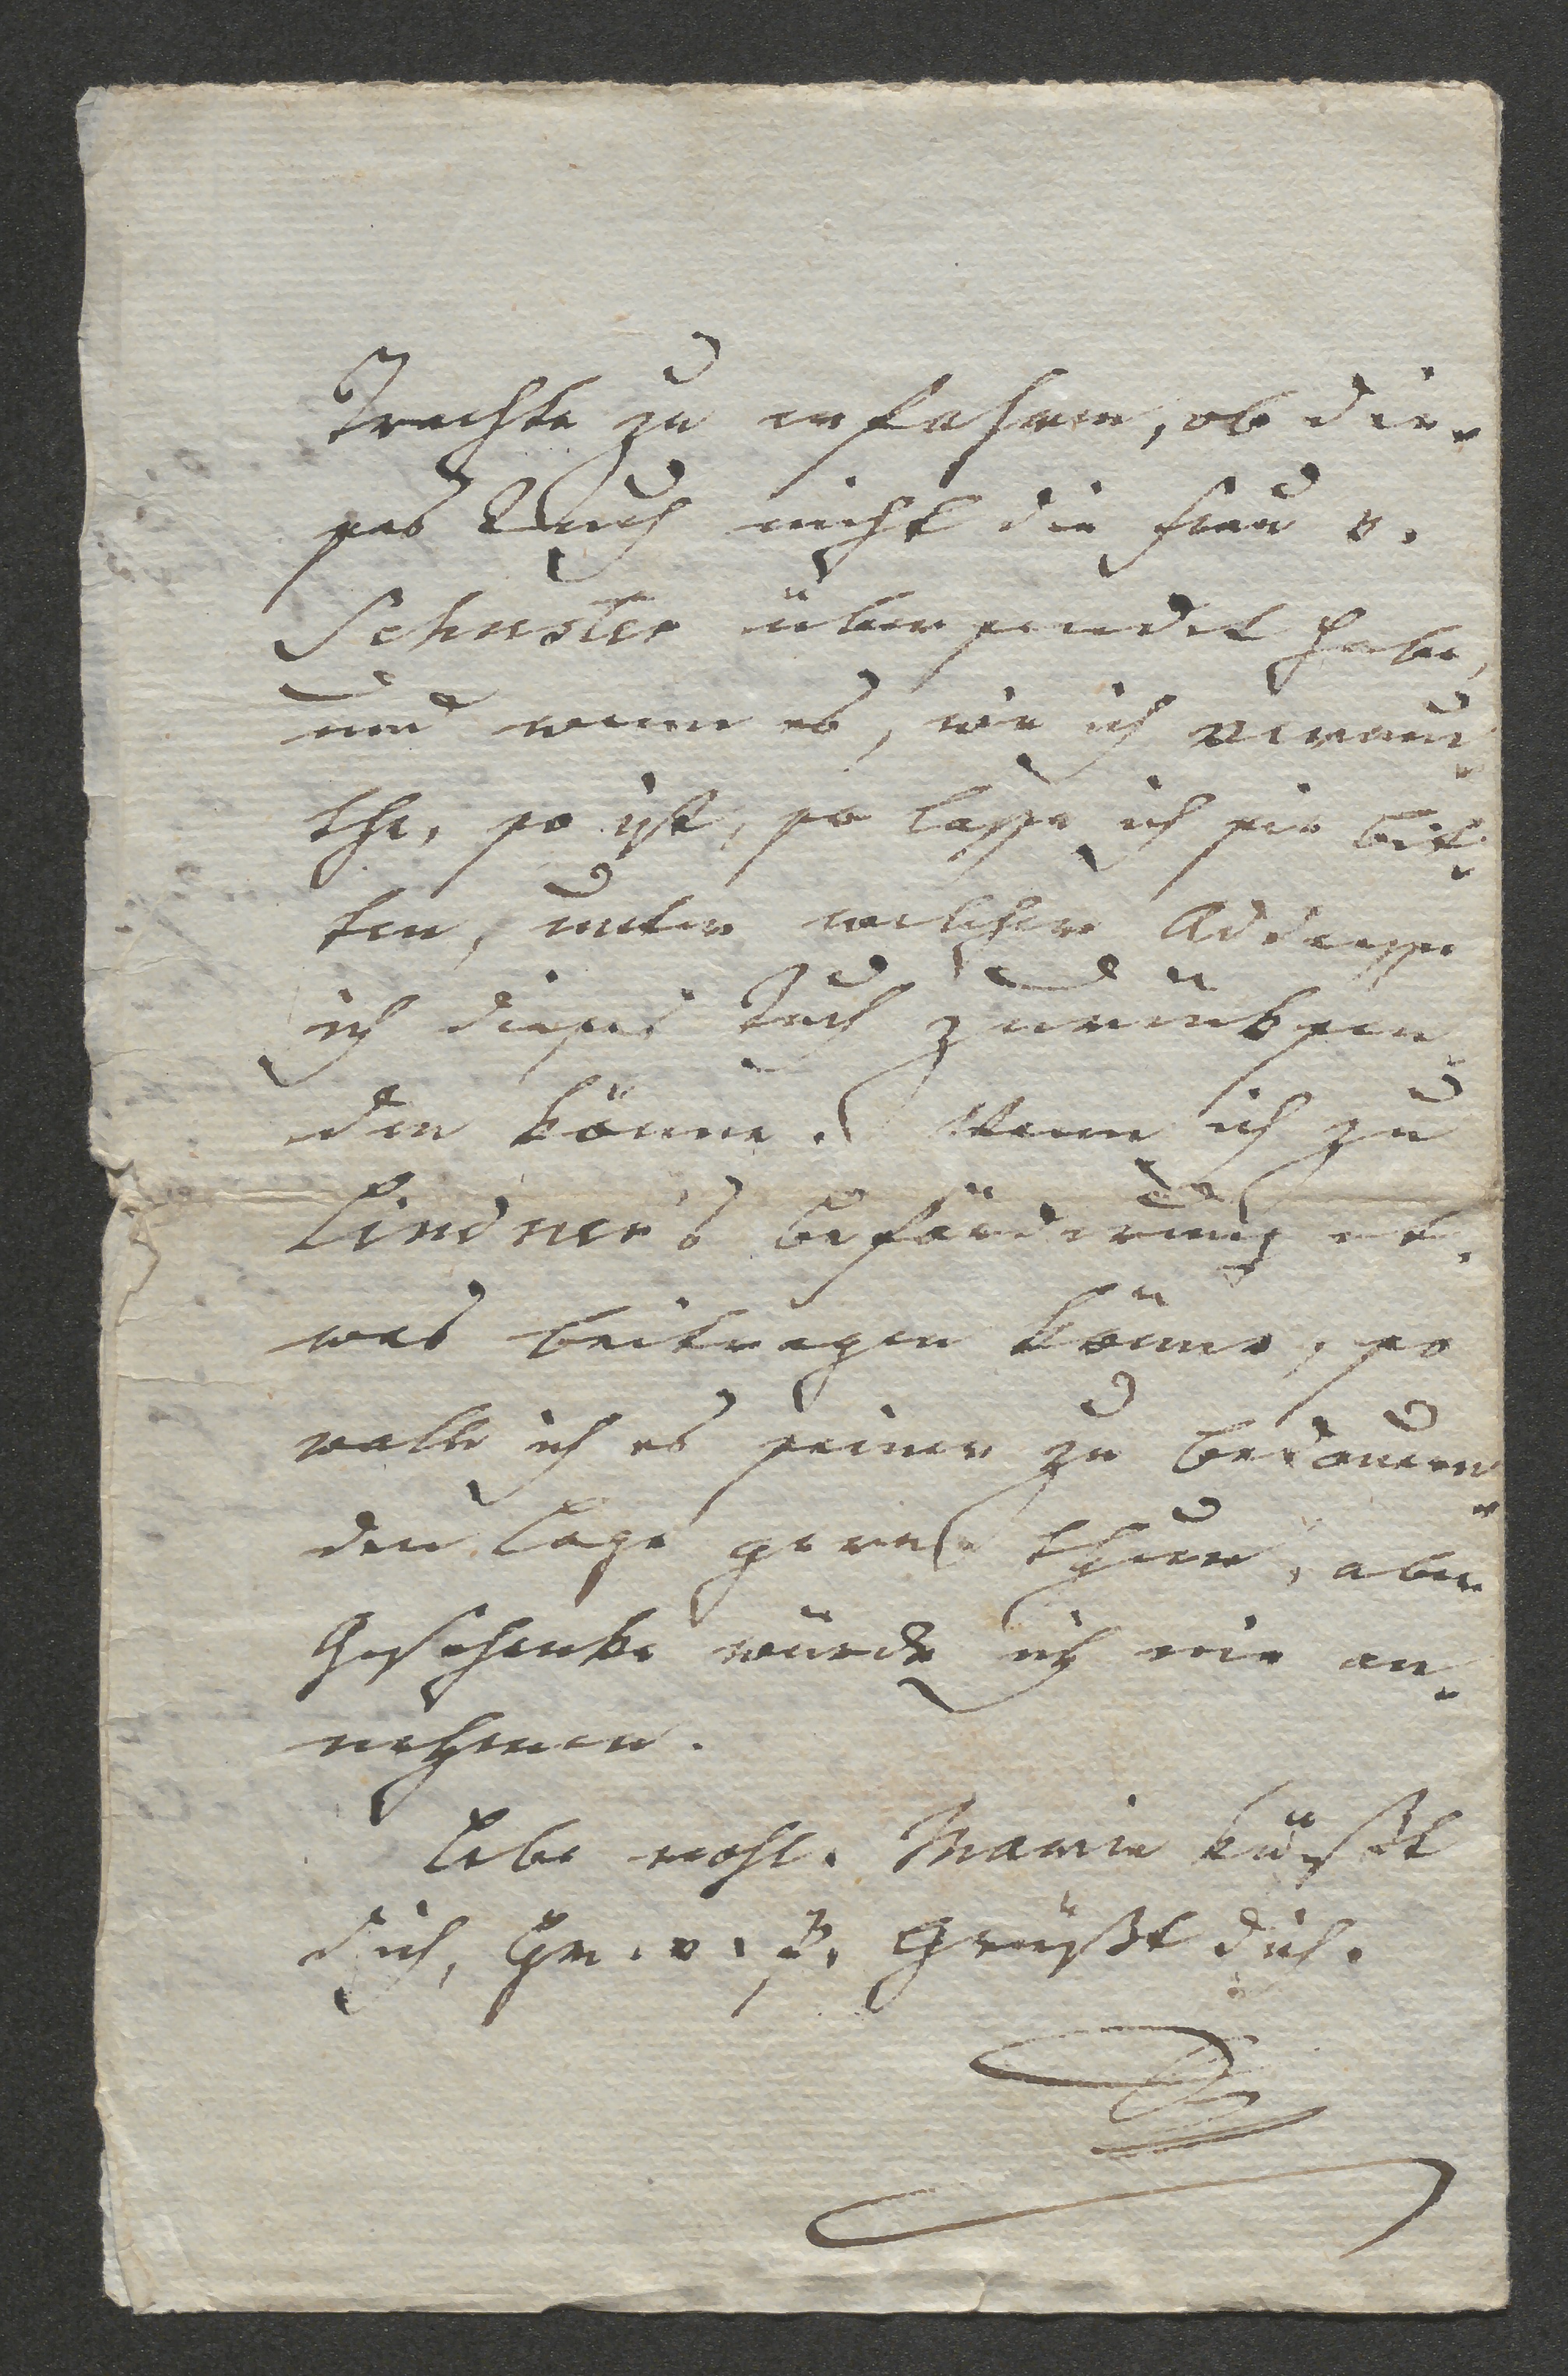 Trachte zu erfahren, ob die-
ses Tuch nicht die Frau v.
Schuster übersendet habe,
und wenn es, wie ich vermu-
the, so ist, so lasse ich sie bit-
ten, unter welcher Addresse
ich dieses Tuch zurücksen-
den könne. Wenn ich zu
Lindner's Beförderung et-
was beitragen könne, so
wolle ich es seiner zu bedauern-
den Lage gerne thun, aber
Geschenke würde ich nie an-
nehmen.
Lebe wohl. Marie küßt
dich, Gr. v. P. Grüßt dich.